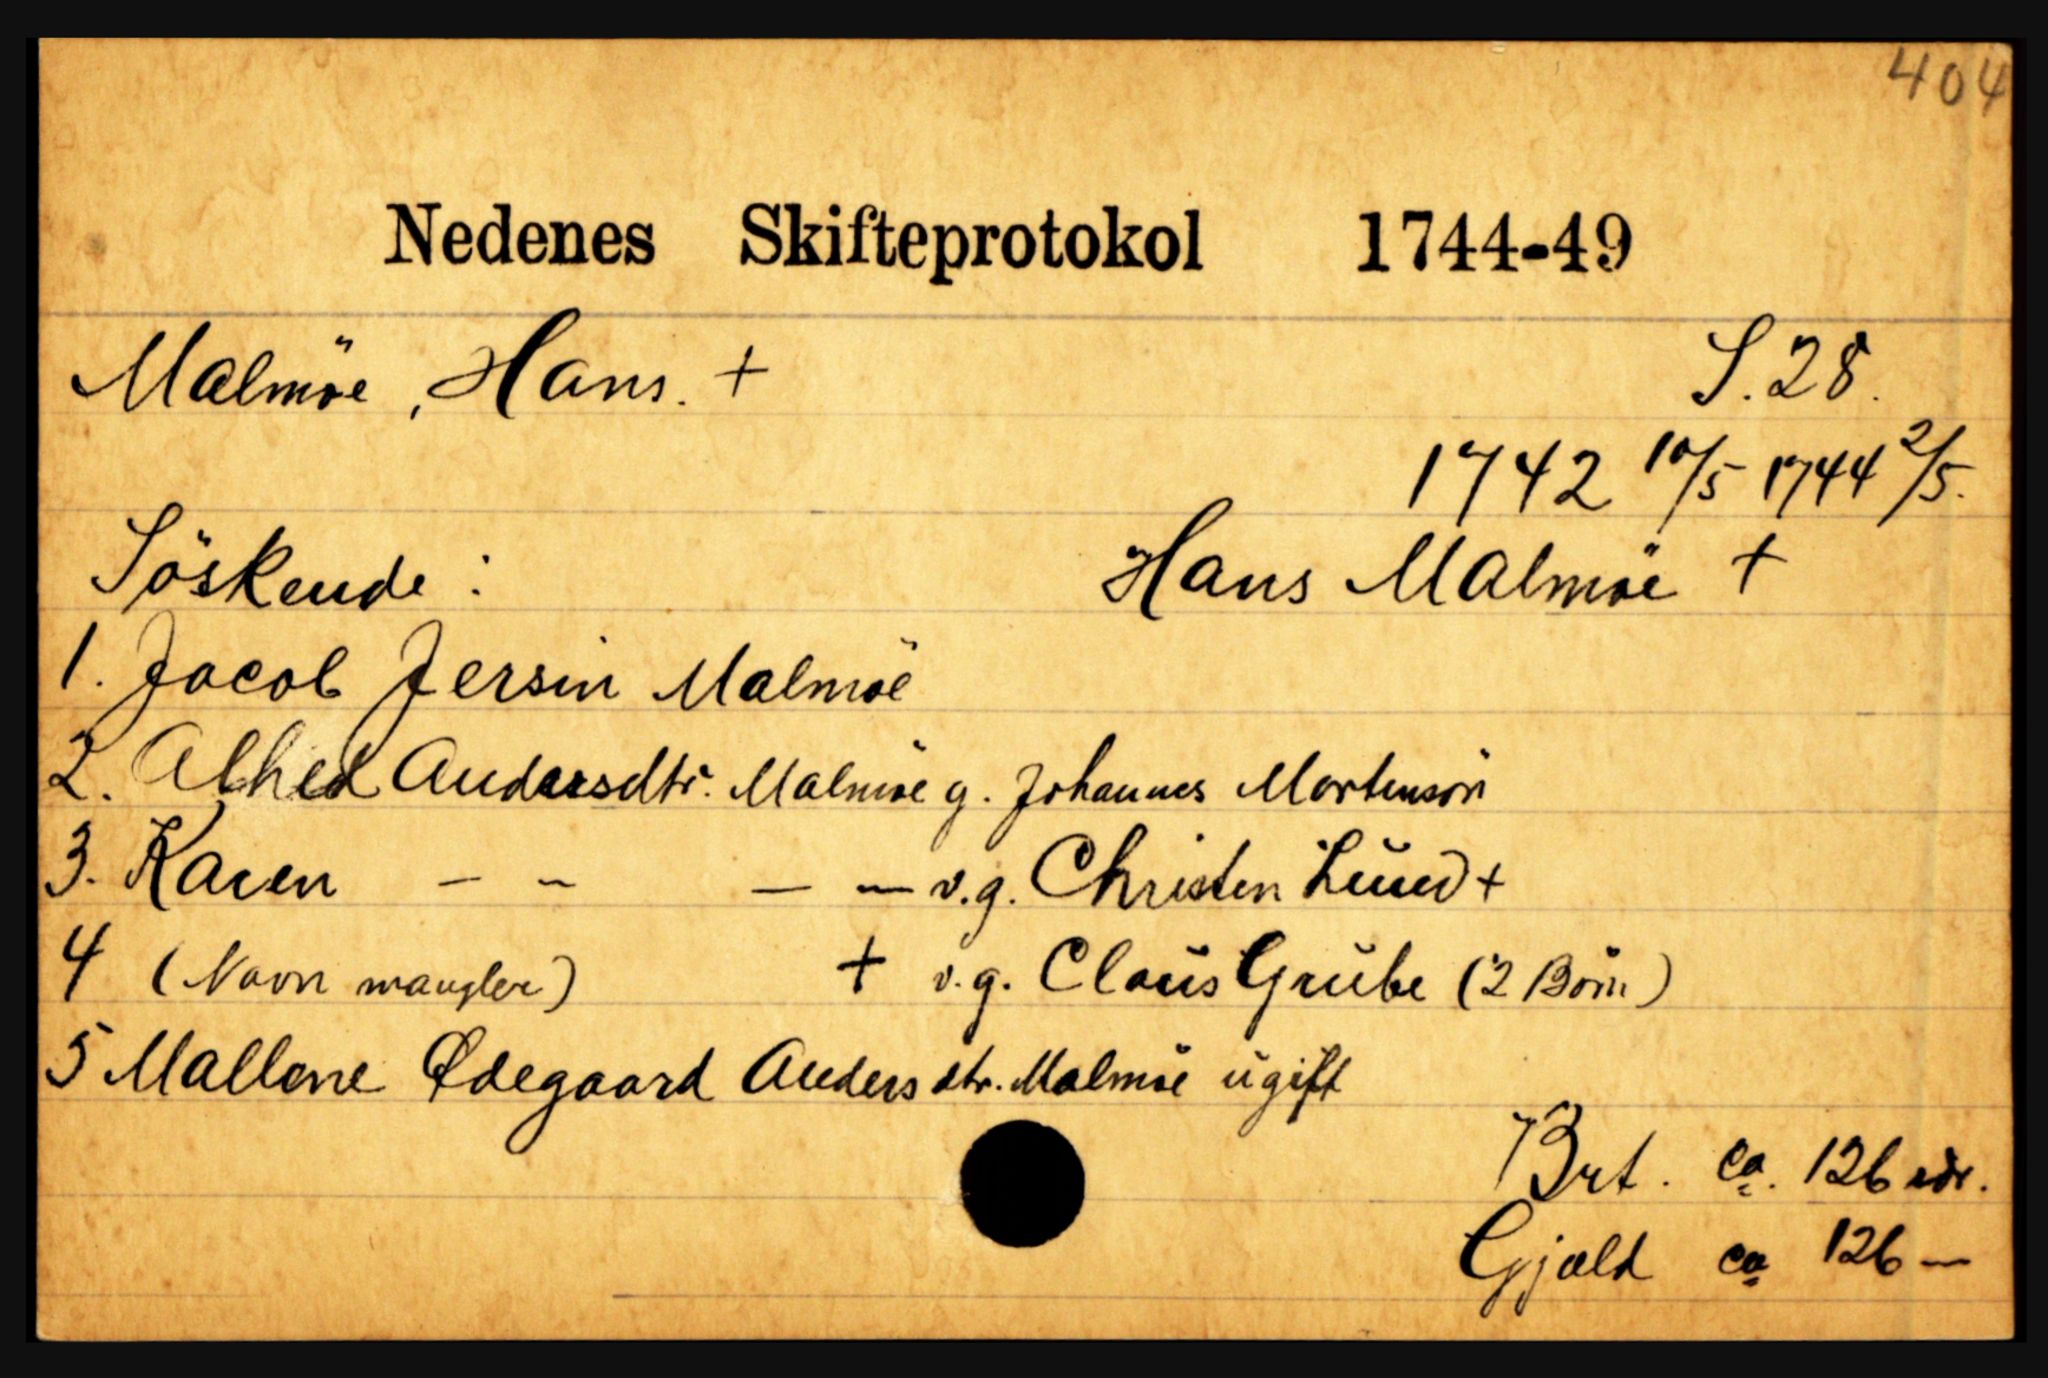 404
Nedenes Skifteprotokol 1744-49
Malmöe, Hans. + S. 28.
1742 10/5 1744 2/5.
Söskende : Hans Malmöe +
1. Jacob Jersin Malmöe
2. Alhed Andersdtr. Malmöe g. Johannes Mortensön
3. Karen - - - - v.g. Christen Lund +
4 (Navn mangler) + v.g. Claus Grube (2 Börn)
5 Mallene Ødegaard Andersdtr. Malmöe ugift
Brt. ca. 126 rdr.
Gjæld ca 126 -